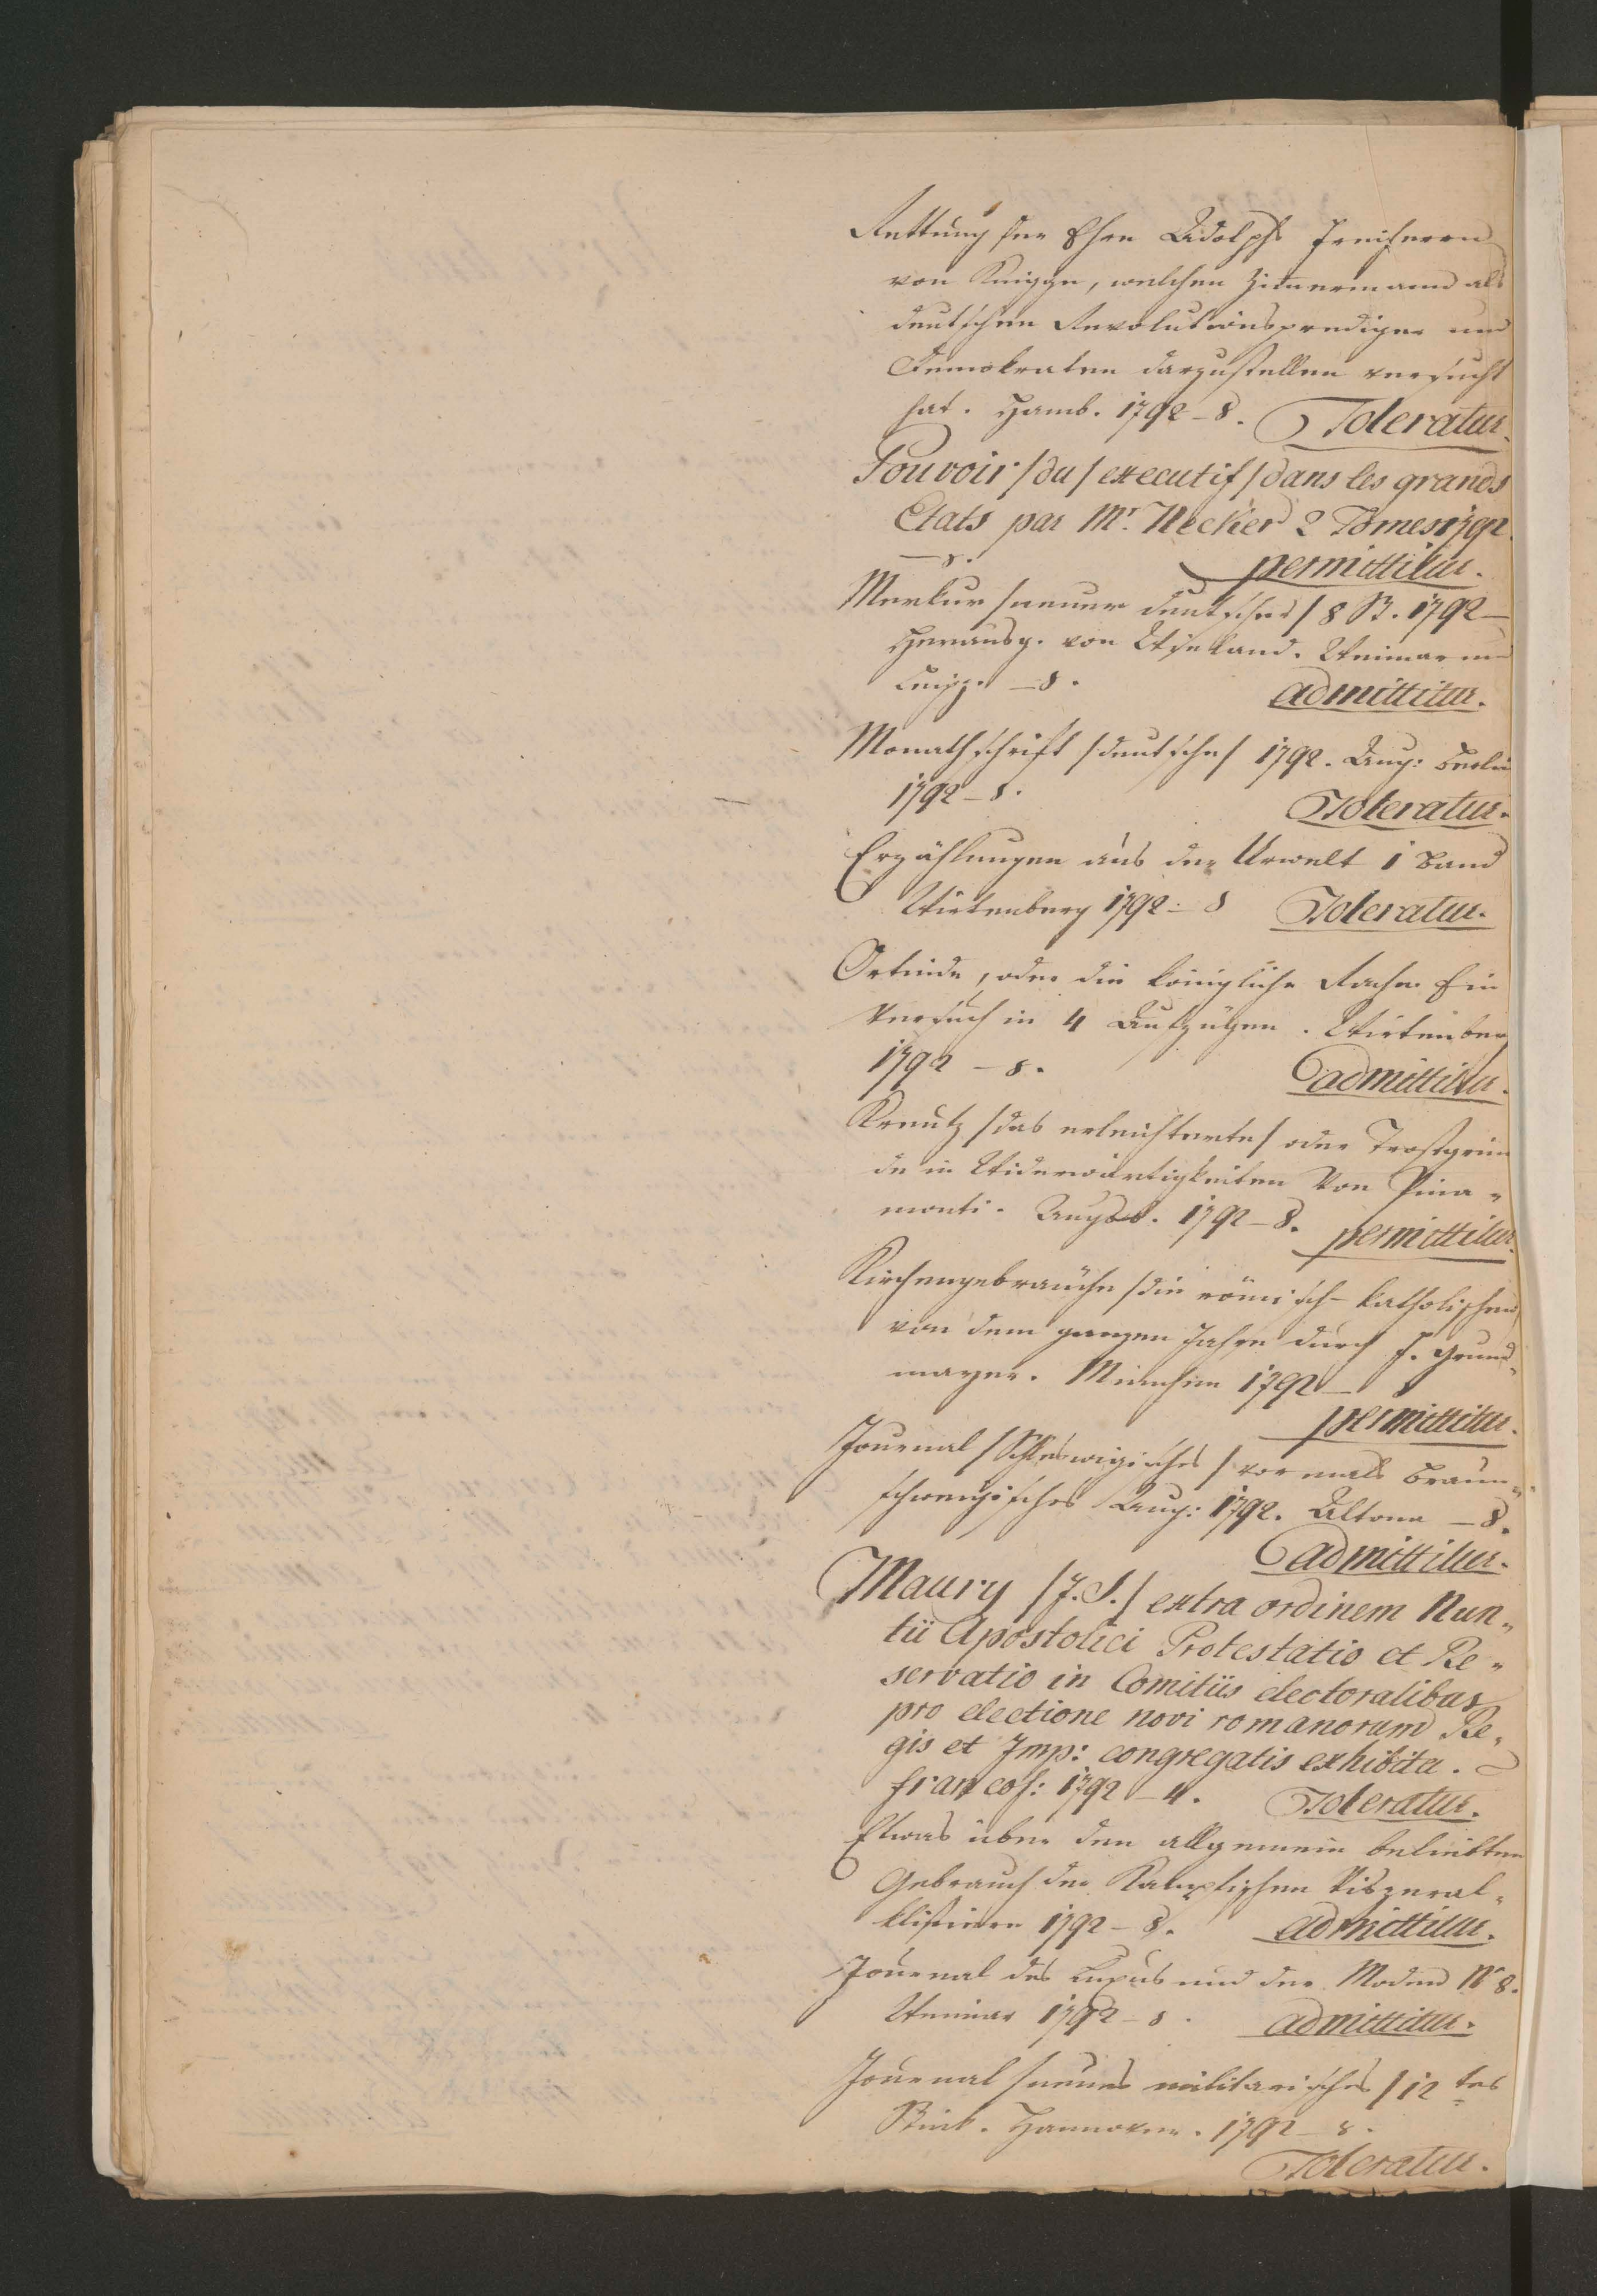 Rettung der Ehre Adolphs Freiherrn
von Knigge, welchen Zimmermann als
deutschen Revolutionsprediger und
Demokraten darzustellen versucht
hat. Hamb. 1792 – 8. Toleratur.
Pouvoir /du/ executif /dans les grands
Etats par Mr. Necker 2 Tomes 1792.
– 8. permittitur.
Merkur /neuer deutscher/ 8 St. 1792 –
Herausg. von Wieland. Weimar und
Leipz. – 8. admittitur.
Monathschrift /deutsche/ 1792. Aug: Berlin
1792 – 8. Toleratur.
Erzählungen aus der Urwelt 1 Band
Wirtenberg 1792 – 8 Toleratur.
Ortinde, oder die königliche Rache. Ein
Versuch in 4 Aufzügen. Wirtenberg
1792 – 8. admittitur.
Kreutz /das erleichterte/ oder Trostgrün
de in Widerwärtigkeiten Von Pina-
monti. Augsb. 1792 – 8. permittitur.
Kirchengebräuche /die römisch-katholischen
von dem ganzen Jahre durch F. Grund-
mayer. München 1792 – 8
permittitur.
Journal /Schleswigisches/ vormals Braun-
schweigisches Aug: 1792. Altona – 8.
admittitur.
Maury /J. S./ extra ordinem Nun-
tii Apostolici Protestatio et Re-
servatio in Comitiis electoralibus
pro electione novi romanorum Re-
gis et Imp: congregatis exhibita.
francof: 1792 – 4. Toleratur.
Etwas über den allgemein beliebten
Gebrauch der Kämpfischen Viszeral-
klistiere 1792 – 8. admittitur.
Journal des Luxus und der Moden No 8.
Weimar 1792 – 8. admittitur.
Journal /neues militarisches/ 12 tes
Stück. Hannover. 1792 – 8.
Toleratur.